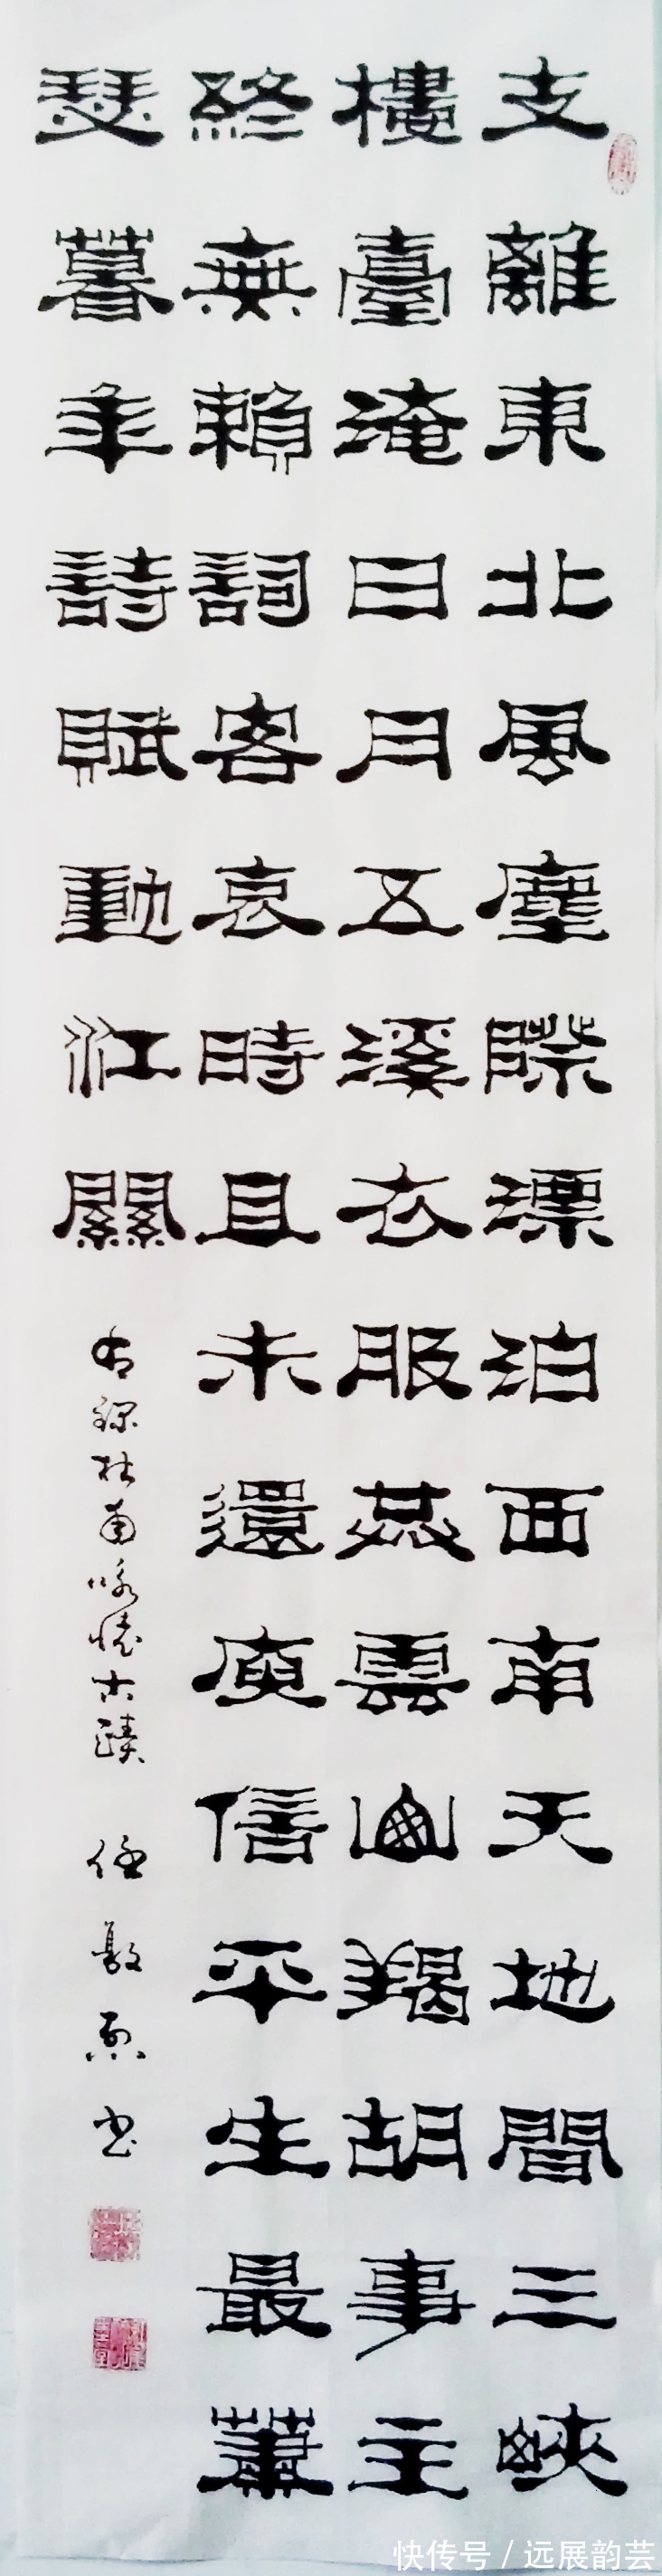 支離東北風塵際漂泊西南天地間三峽
樓臺淹日月五溪衣服共雲山羯胡事主
終無賴詞客哀時且未還庾信平生最蕭
瑟暮年詩賦動江關
右錄杜甫咏懷古蹟 任 書
快传号 / 远展韵芸